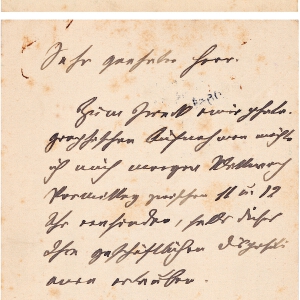 Sehr geehrter Herr.
Zum Zweck einer photo-
graphischen Aufnahme möchte
ich mich morgen Mittwoch
Vormittag zwischen 11 u. 12
Uhr einfinden, falls dies
Ihre geschäftlichen Dispositi
onen erlauben.